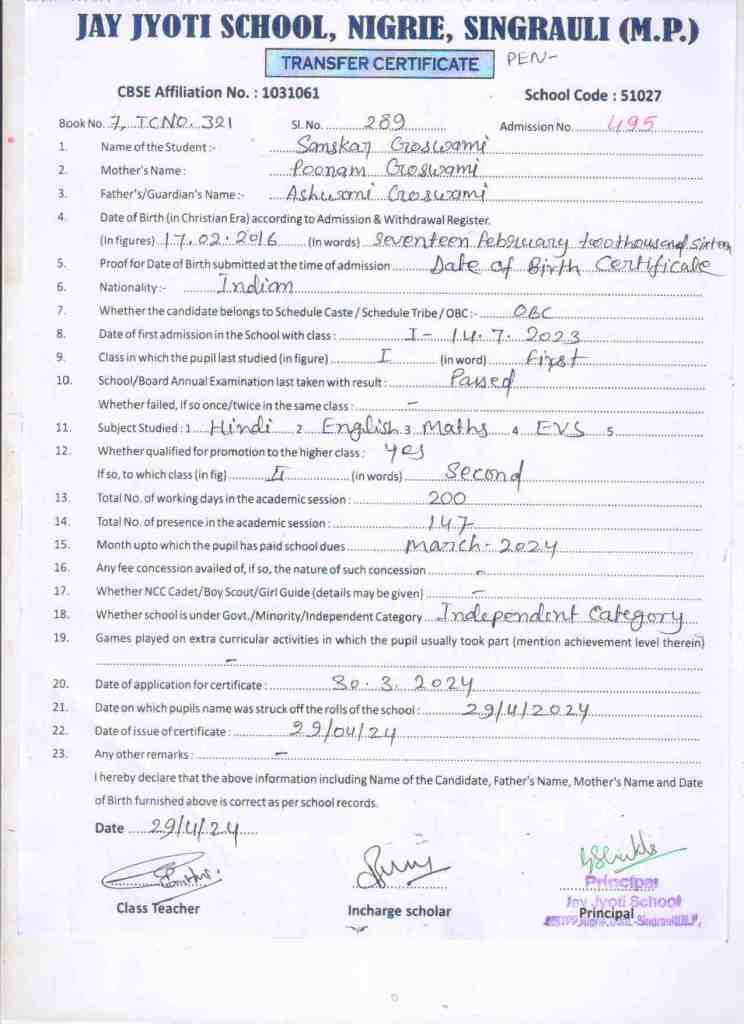 JAY JYOTI SCHOOL, NIGRIE, SINGRAULI (M.P.)
TRANSFER CERTIFICATE PEN-
CBSE Affiliation No. : 1031061 School Code : 51027
Book No. 7, TC NO. 321 Sl. No. 289 Admission No. 495
1. Name of the Student :- Sanskar Goswami
2. Mother's Name : Poonam Goswami
3. Father's/Guardian's Name :- Ashwani Goswami
4. Date of Birth (in Christian Era) according to Admission & Withdrawal Register.
(In figures) 17.02.2016 (In words) Seventeen February twothousand sixteen
5. Proof for Date of Birth submitted at the time of admission Date of Birth Certificate
6. Nationality :- Indian
7. Whether the candidate belongs to Schedule Caste / Schedule Tribe / OBC :- OBC
8. Date of first admission in the School with class : I - 14.7.2023
9. Class in which the pupil last studied (in figure) I (in word) First
10. School/Board Annual Examination last taken with result : Passed
Whether failed, if so once/twice in the same class : -
11. Subject Studied : 1 Hindi 2 English 3 Maths 4 EVS 5
12. Whether qualified for promotion to the higher class : yes
If so, to which class (in fig) II (in words) Second
13. Total No. of working days in the academic session : 200
14. Total No. of presence in the academic session : 147
15. Month upto which the pupil has paid school dues March - 2024
16. Any fee concession availed of, if so, the nature of such concession -
17. Whether NCC Cadet/Boy Scout/Girl Guide (details may be given) -
18. Whether school is under Govt./Minority/Independent Category Independent Category
19. Games played on extra curricular activities in which the pupil usually took part (mention achievement level therein)
-
20. Date of application for certificate : 30.3.2024
21. Date on which pupils name was struck off the rolls of the school : 29/4/2024
22. Date of issue of certificate : 29/04/24
23. Any other remarks : -
I hereby declare that the above information including Name of the Candidate, Father's Name, Mother's Name and Date
of Birth furnished above is correct as per school records.
Date 29/4/24
Principal
Jay Jyoti School
Class Teacher Incharge scholar Principal